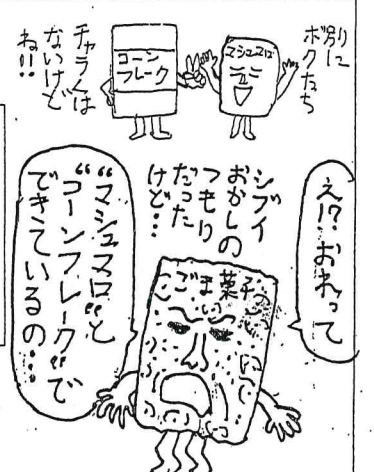 別に
ボクたち
マシュマロ
コーン
フレーク
チャラくは
ないけど
ね!!
え!? おれって
シブイ
おかしの
つもり
だった
けど…
ごま菓子
"マシュマロ"と
"コーンフレーク"で
できているの…